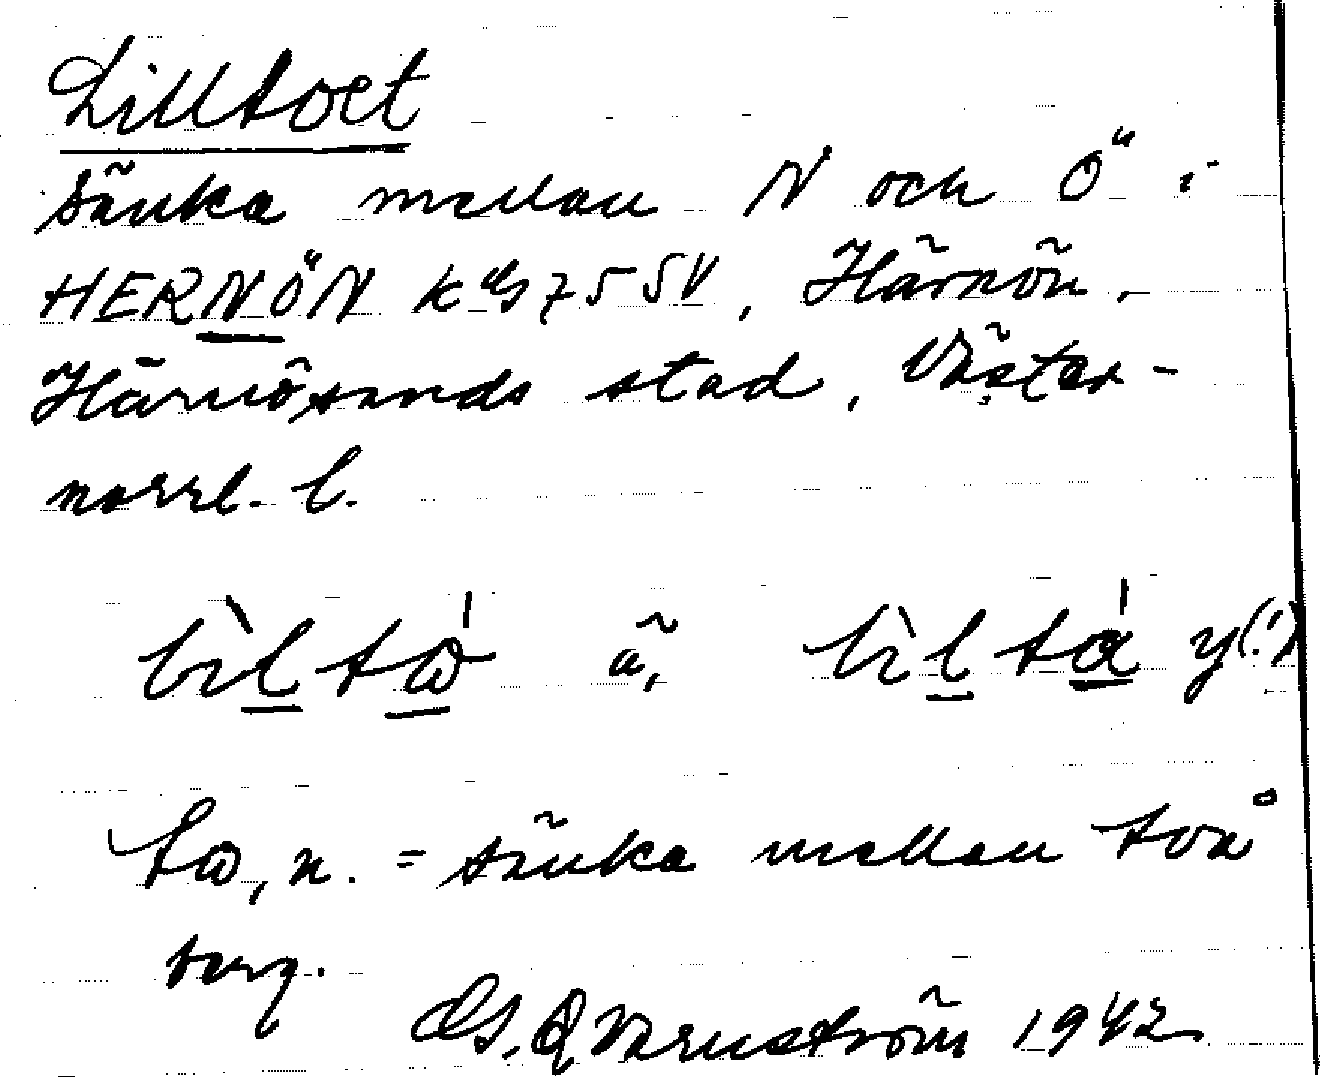 Lilltoet
Sänka mellan N och Ö i
HERNÖN kbl 75 SV, Härnön,
Härnösands stad, Väster-
norrl. l.
ä,
n. = sänka mellan två
berg.
Varnström 1942